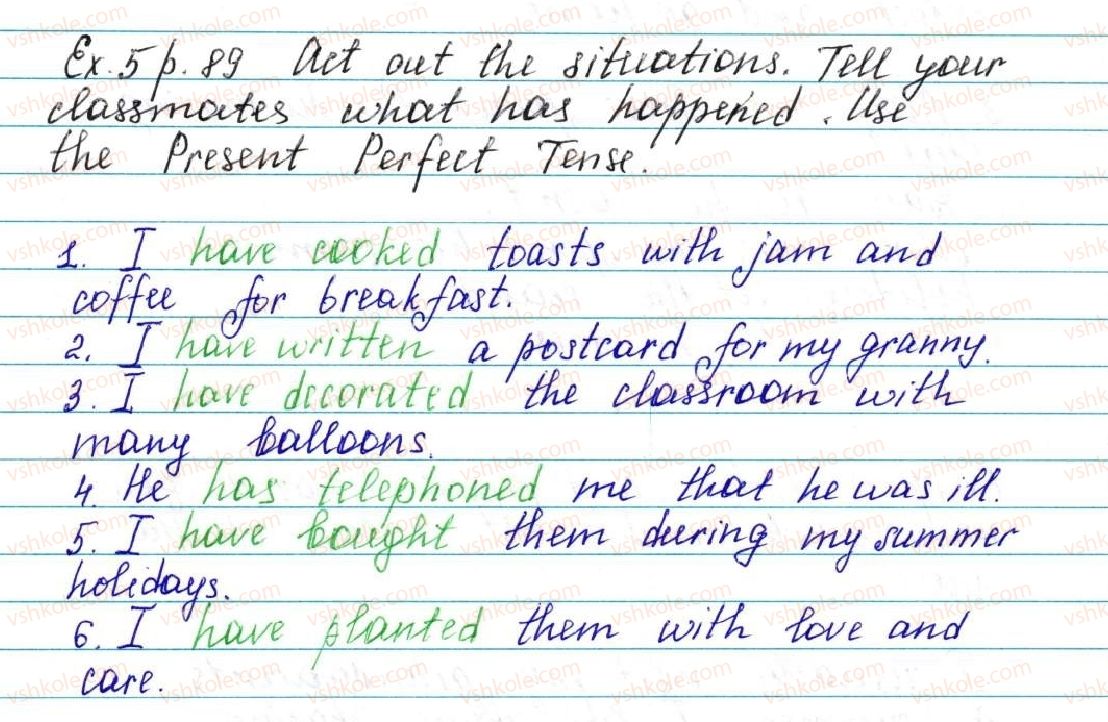 Ex. 5 p. 89 Act out the situations. Tell your
classmates what has happened. Use
the Present Perfect Tense.
1. I have cooked toasts with jam and
coffee for breakfast.
2. I have written a postcard for my granny.
3. I have decorated the classroom with
many balloons.
4. He has telephoned me that he was ill.
5. I have bought them during my summer
holidays.
6. I have planted them with love and
care.
vshkole.com